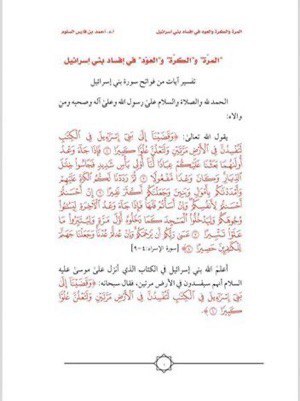 المرة والكرة والعود في إفساد بني إسرائيل
أ.د. أحمد بن فارس السلوم
"المرّة" و"الكرّة" و"العوْد" في إفساد بني إسرائيل
تفسير آيات من فواتح سورة بني إسرائيل
الحمد لله والصلاة والسلام على رسول الله وعلى آله وصحبه ومن
والاه:
يقول الله تعالى: ﴿وَقَضَيْنَا إِلَىٰ بَنِي إِسْرَائِيلَ فِي الْكِتَابِ
لَتُفْسِدُنَّ فِي الْأَرْضِ مَرَّتَيْنِ وَلَتَعْلُنَّ عُلُوًّا كَبِيرًا ﴿٤﴾ فَإِذَا جَاءَ وَعْدُ
أُولَاهُمَا بَعَثْنَا عَلَيْكُمْ عِبَادًا لَنَا أُولِي بَأْسٍ شَدِيدٍ فَجَاسُوا خِلَالَ
الدِّيَارِ وَكَانَ وَعْدًا مَفْعُولًا ﴿٥﴾ ثُمَّ رَدَدْنَا لَكُمُ الْكَرَّةَ عَلَيْهِمْ
وَأَمْدَدْنَاكُمْ بِأَمْوَالٍ وَبَنِينَ وَجَعَلْنَاكُمْ أَكْثَرَ نَفِيرًا ﴿٦﴾ إِنْ أَحْسَنْتُمْ
أَحْسَنْتُمْ لِأَنْفُسِكُمْ وَإِنْ أَسَأْتُمْ فَلَهَا فَإِذَا جَاءَ وَعْدُ الْآخِرَةِ لِيَسُوءُوا
وُجُوهَكُمْ وَلِيَدْخُلُوا الْمَسْجِدَ كَمَا دَخَلُوهُ أَوَّلَ مَرَّةٍ وَلِيُتَبِّرُوا مَا عَلَوْا
تَتْبِيرًا ﴿٧﴾ عَسَىٰ رَبُّكُمْ أَنْ يَرْحَمَكُمْ وَإِنْ عُدْتُمْ عُدْنَا وَجَعَلْنَا جَهَنَّمَ
لِلْكَافِرِينَ حَصِيرًا ﴿٨﴾ [سورة الإسراء: ٤-٩]
أعلمَ الله بني إسرائيل في الكتاب الذي أنزل على موسى عليه
السلام أنهم سيفسدون في الأرض مرتين، فقال سبحانه: ﴿وَقَضَيْنَا إِلَىٰ
بَنِي إِسْرَائِيلَ فِي الْكِتَابِ لَتُفْسِدُنَّ فِي الْأَرْضِ مَرَّتَيْنِ وَلَتَعْلُنَّ عُلُوًّا
كَبِيرًا ﴿٤﴾